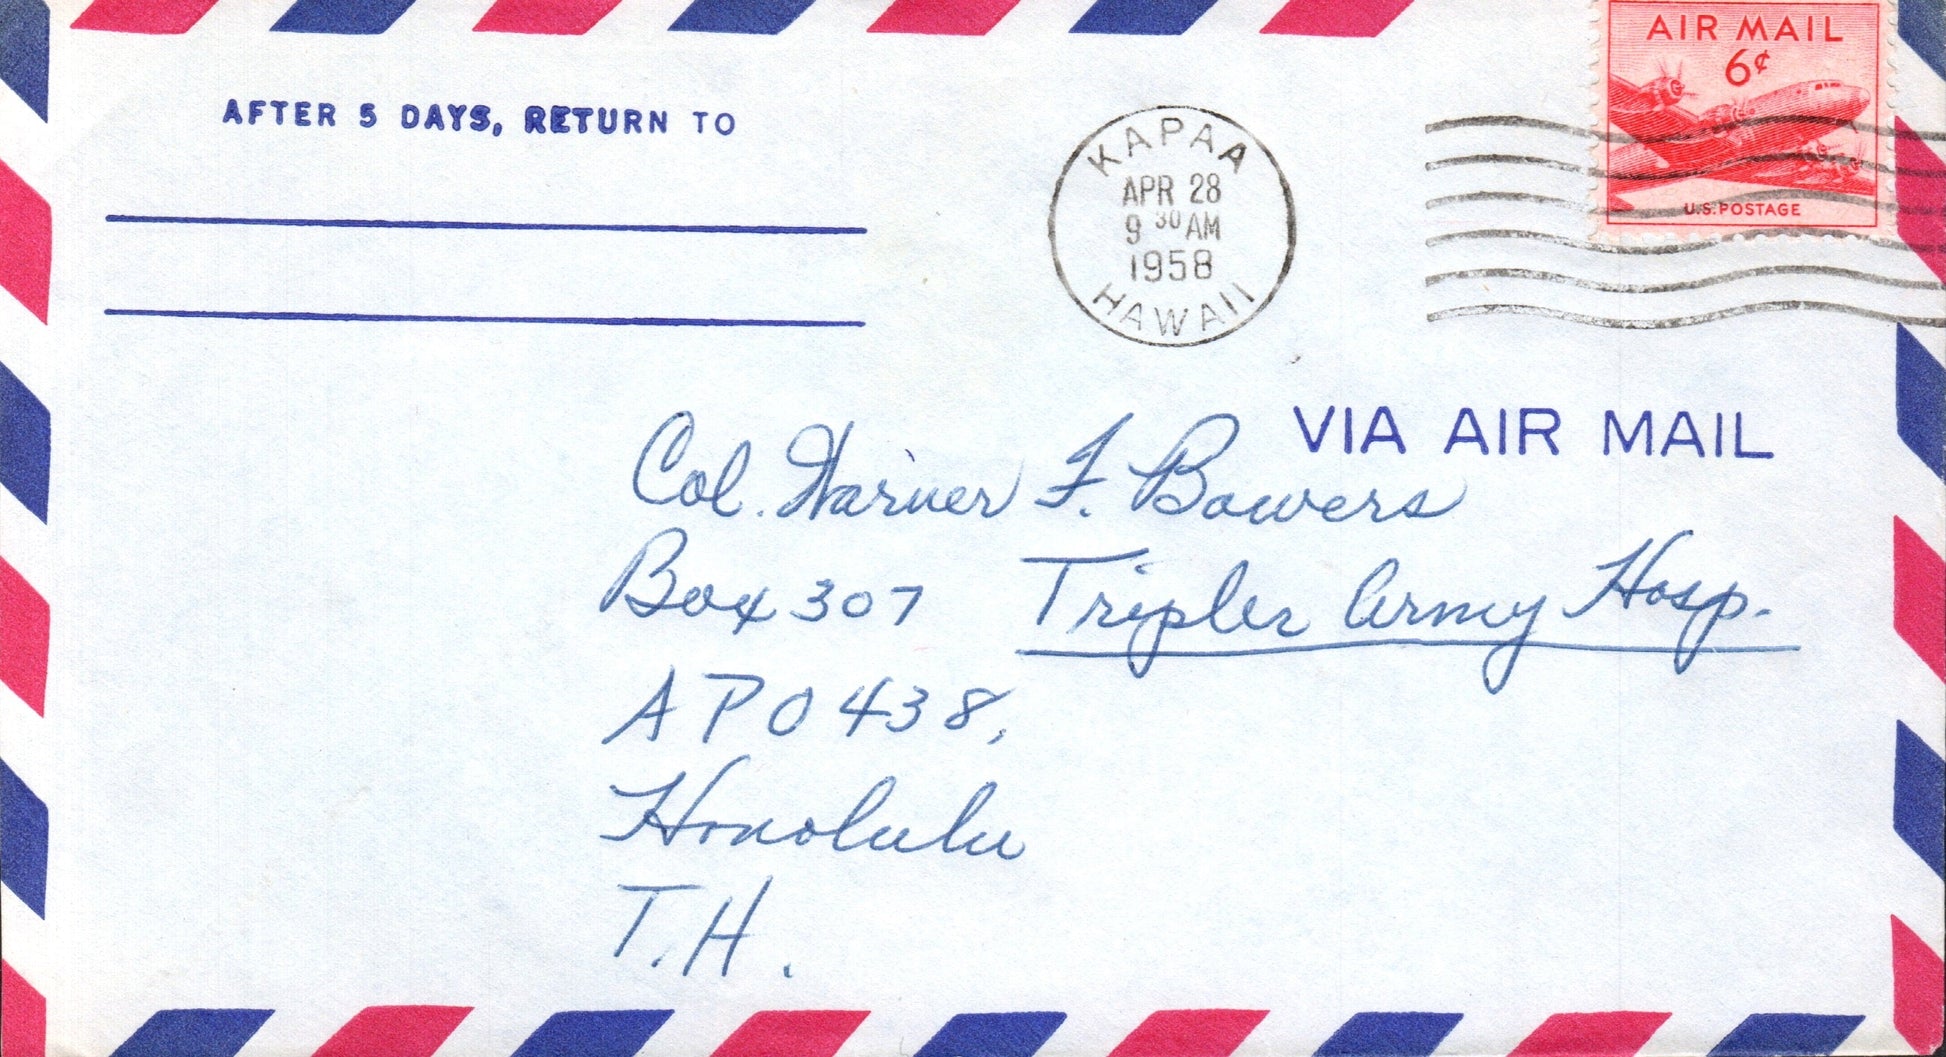 AIR MAIL
6¢
U.S. POSTAGE
AFTER 5 DAYS, RETURN TO
KAPAA
APR 28
9 30 AM
1958
HAWAII
VIA AIR MAIL
Col. Warner F. Bowers
Box 307 Tripler Army Hosp.
APO 438,
Honolulu
T.H.